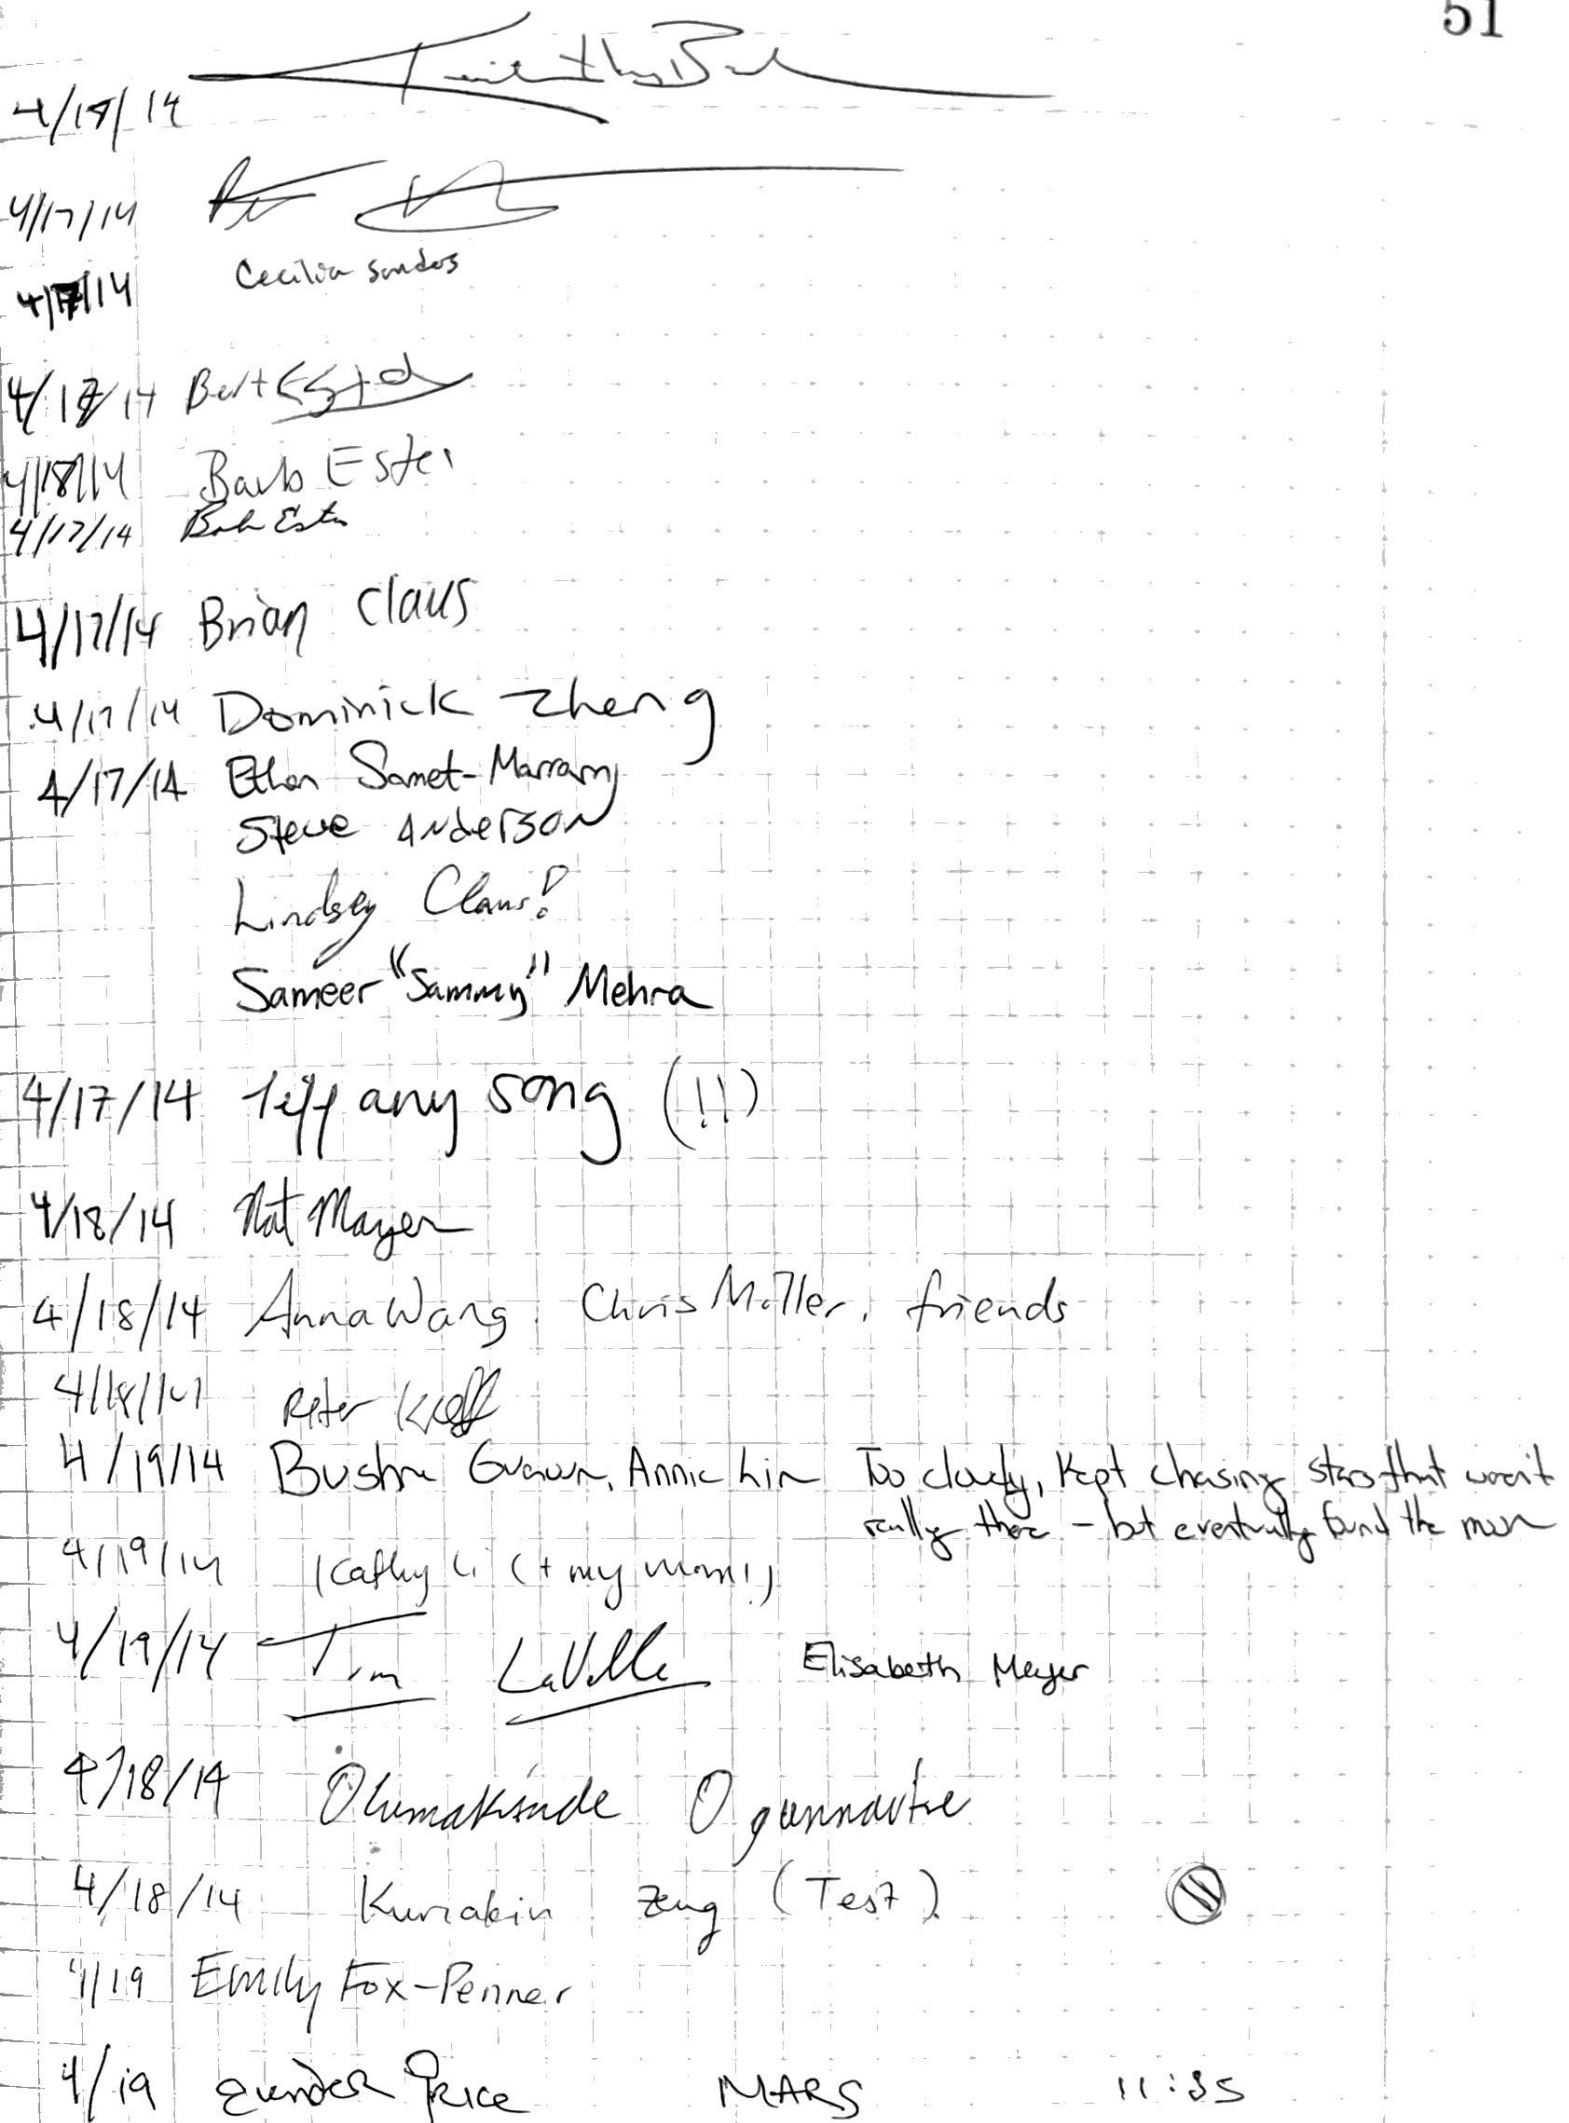 51
4/19/14 Timothy
4/17/14
4/17/14 Cecilia Sanders
4/18/14 Bert
4/18/14 Barb Ester
4/17/14 Bob Ester
4/17/14 Brian Claus
4/17/14 Dominick Zheng
4/17/14 Ethan Samet-Marram
Steve Anderson
Lindsey Claus!
Sameer "Sammy" Mehra
4/17/14 Tiffany Song (!!)
4/18/14 Nat Mayer
4/18/14 Anna Wang, Chris Miller, friends
4/18/14 Peter
4/19/14 Bushra Annie Lin Too cloudy, kept chasing stars that weren't
really there - but eventually found the moon
4/19/14 Kathy Li (+ my mom!)
4/19/14 Tim LaVille Elisabeth Meyer
4/18/14 Olumakinde Ogunnaike
4/18/14 Kuriakin Zeng (Test)
4/19 Emily Fox-Penner
4/19 Price MARS 11:35